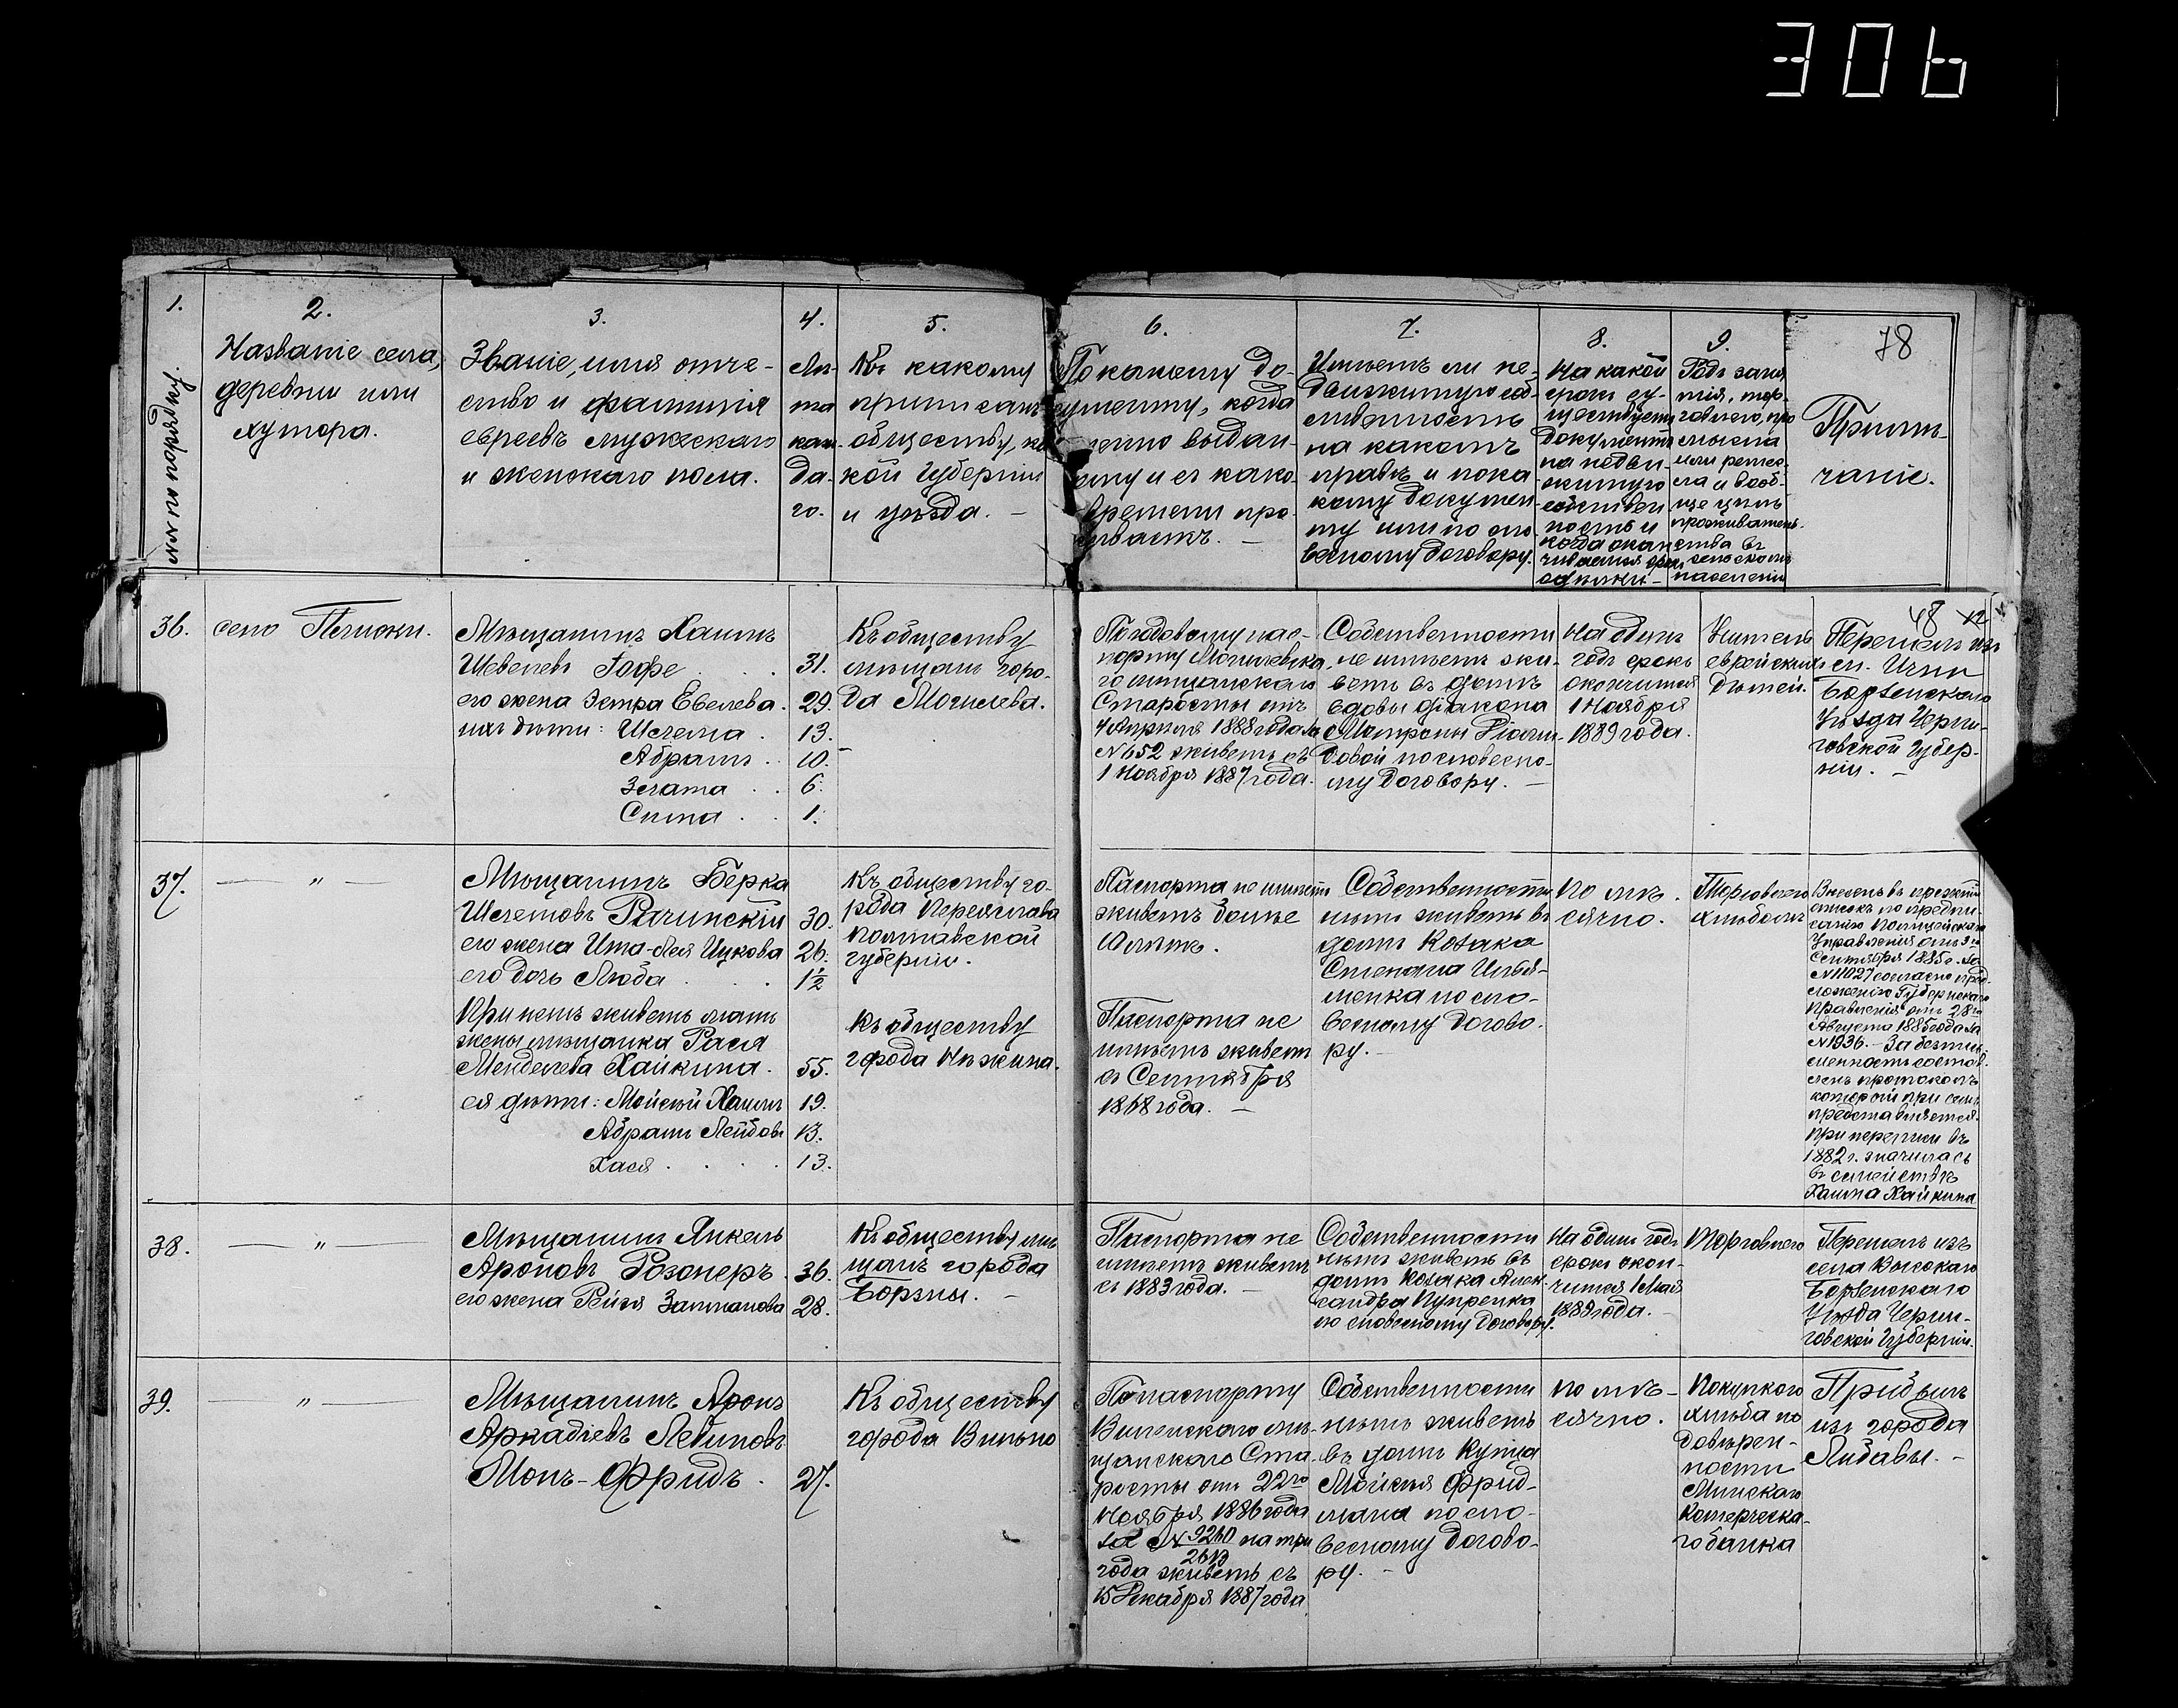 306
78
1.
№№ по порядку.
2.
Названіе села,
деревни или
хутора.
3.
Званіе, имя отче-
ство и фамилія
евреевъ мужескаго
и женскаго пола.
4.
Лѣ-
та
каж-
да-
го.
5.
Къ какому
приписанъ
обществу, ка-
кой губерніи
и уѣзда. —
6.
По какому до-
кументу, когда
выдан-
ному и съ како-
времени про-
живаетъ. —
7.
Имѣетъ ли не-
движимую соб-
ственность
на какомъ
правѣ и по ка-
кому докумен-
ту или по сло-
весному договору.
8.
На какой
срокъ су-
ществуетъ
документъ
на недви-
жимую
собствен-
ность и
когда окан-
чивается срокъ
9.
Родъ заня-
тія, тор-
говлею, про-
мысла
или ремес-
ла и вооб-
ще цѣль
проживатель-
ства въ
сельскомъ
населеніи
Примѣ-
чаніе.
48
36.
село Плиски.
Мѣщанинъ Хаимъ
Шевелевъ Гофе . . . 31.
его жена Эстра Евелева. 29.
ихъ дѣти: Шелема . 13.
Абрамъ . . 10.
Злата . . 6.
Сима . . 1.
Къ обществу
мѣщанъ горо-
да Могилева.
По годовому пас-
порту Могилевска-
го мѣщанскаго
Старосты отъ
4 Апрѣля 1888 года за
№ 652 живетъ съ
1 Ноября 1887 года.
Собственности
не имѣетъ жи-
ветъ въ домѣ
вдовы діакона
Матроны
по словесно-
му договору. —
На одинъ
годъ срокъ
окончится
1 Ноября
1889 года.
Учитель
еврейскихъ
дѣтей.
Перешелъ изъ
м. Ични
Борзенскаго
Уѣзда Черни-
говской губер-
ніи. —
37.
— " —
Мѣщанинъ Берка
Шлемовъ Рачинскій 30.
его жена Ита-Лея Ицкова 26.
его дочь Люба . . . 1½
При немъ живетъ мать
жены мѣщанка Рася
Менделева Хайкина. 55.
ея дѣти: Мойсей Хаимъ 19.
Абрамъ Лейбовъ 13.
Хася . . . . 13.
Къ обществу го-
рода Переяслава
Полтавской
губерніи.
Къ обществу
города Нѣжина.
Паспорта не имѣетъ
живетъ болѣе
10 лѣтъ.
Паспорта не
имѣетъ живетъ
съ Сентября
1868 года. —
Собственности
нѣтъ живетъ въ
домѣ Козака
Степана Илья-
шенка по сло-
весному догово-
ру. —
По мѣ-
сячно.
Торговлею
хлѣбомъ
Внесенъ въ прежній
списокъ по предпи-
санію Полицейскаго
Управленія отъ 9го
Сентября 1885 г. за
№ 11027 согласно пред-
ложенію Губернскаго
Правленія отъ 28го
Августа 1885 года за
№ 1936. — За безпись-
менность состав-
ленъ протоколъ
который при семъ
представляется.
При переписи въ
1882 г. значилась
въ семействѣ
Хаима Хайкина
38.
— " —
Мѣщанинъ Янкель
Ароновъ Розонеръ. 36.
его жена Рейзя Залманова 28.
Къ обществу мѣ-
щанъ города
Борзны. —
Паспорта не
имѣетъ живетъ
съ 1883 года. —
Собственности
нѣтъ живетъ въ
домѣ Козака Алек-
сандра Купренка
по словесному договору.
На одинъ годъ
срокъ окон-
чится 1 Мая
1889 года. —
Торговлею
Перешелъ изъ
села Высокаго
Борзенскаго
Уѣзда Черни-
говской Губерніи.
39.
— " —
Мѣщанинъ Аронъ
Аркадіевъ Левиновъ
Монъ-Фридъ . 27.
Къ обществу
города Вильно
По паспорту
Виленскаго мѣ-
щанскаго Ста-
росты отъ 22го
Ноября 1886 года
за № 9260 на три
года живетъ съ
15 Декабря 1887 года
Собственности
нѣтъ живетъ
въ домѣ Купца
Мойсея Фрид-
мана по сло-
весному догово-
ру. —
По мѣ-
сячно.
Покупкою
хлѣба по
довѣрен-
ности
Минскаго
Комерческа-
го банка
Прибылъ
изъ города
Либавы. —